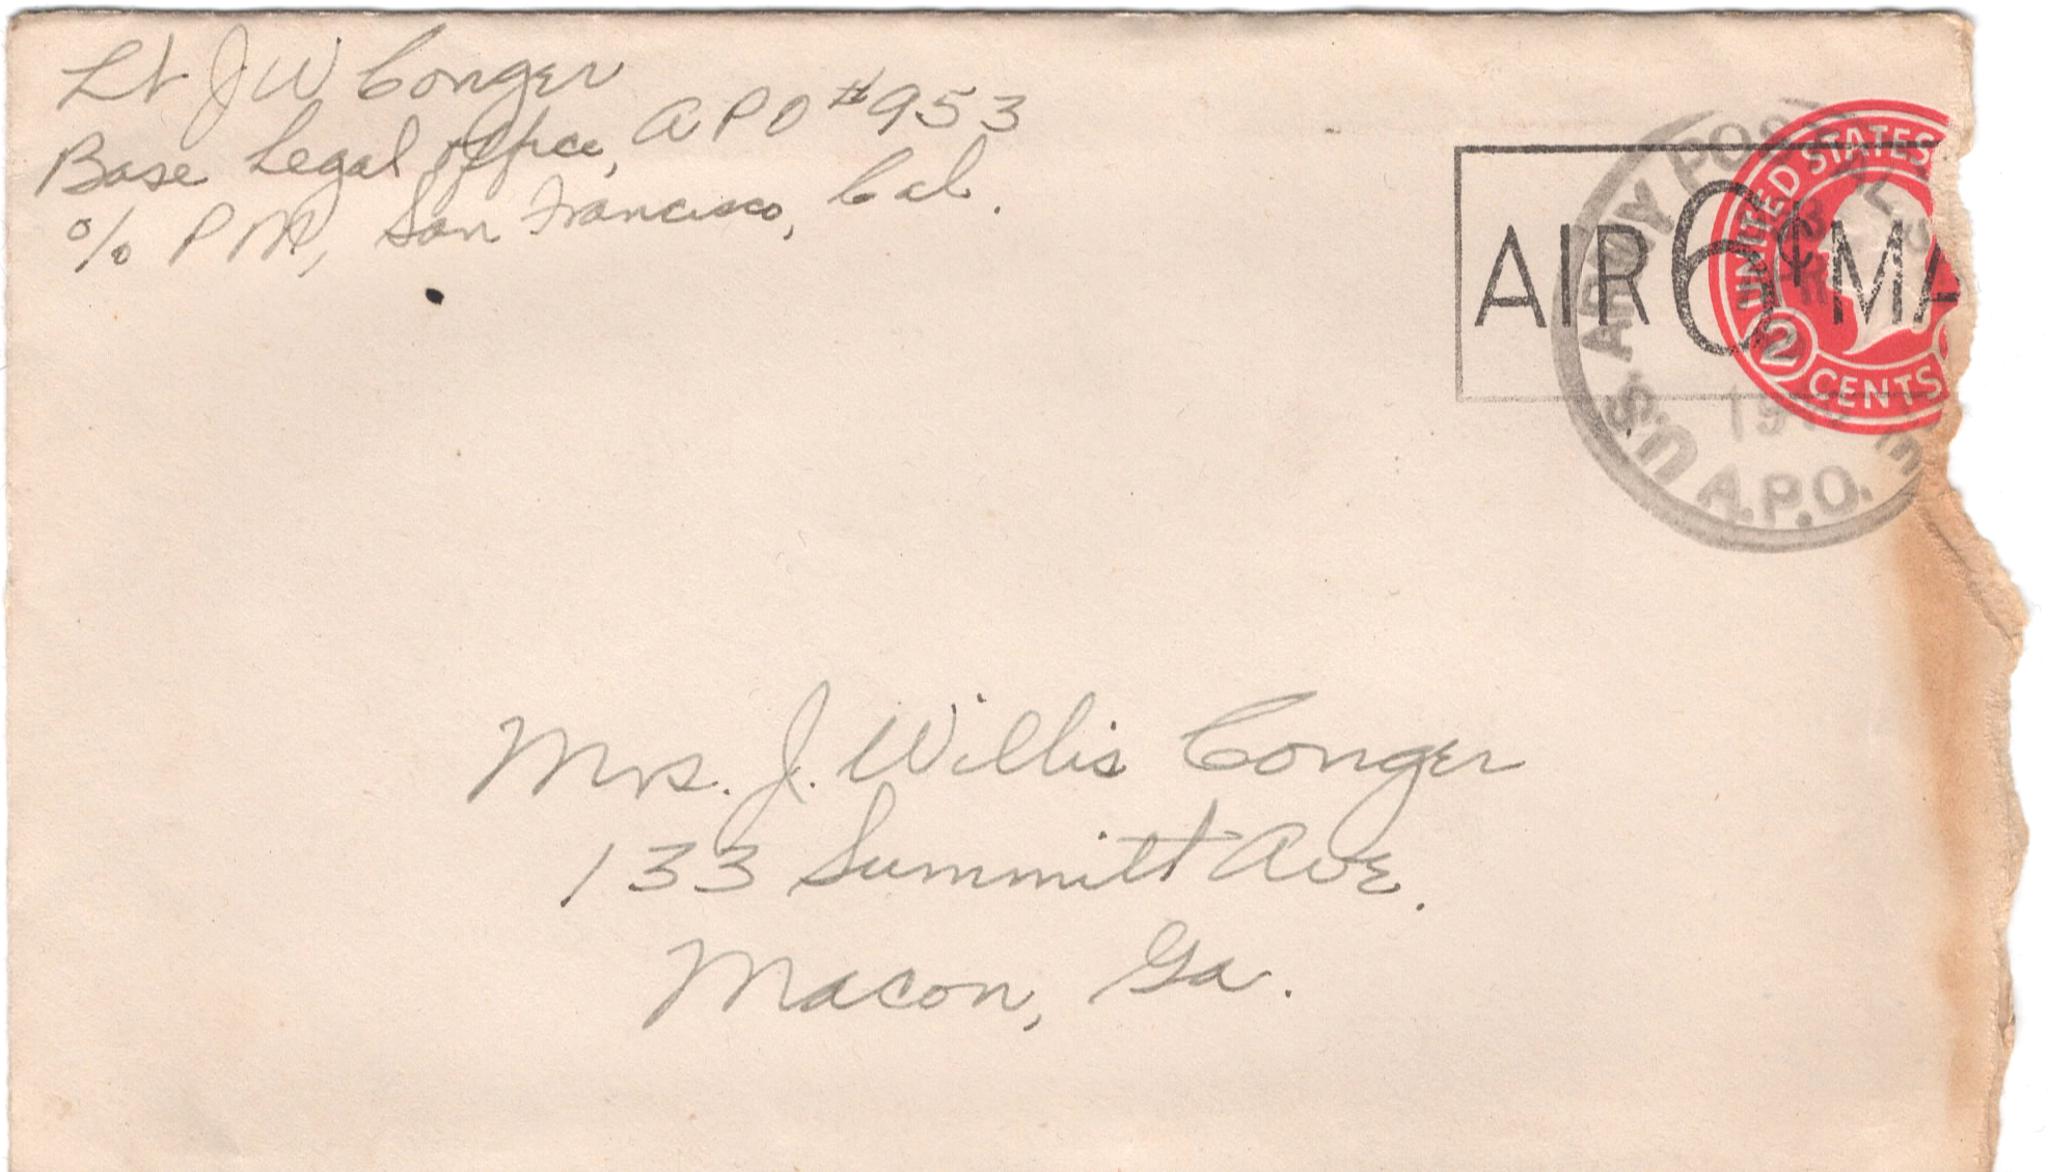 Lt J W Conger
Base Legal Office, APO #953
% PM, San Francisco, Cal.
AIR 6¢ MA
UNITED STATES
2
CENTS
U.S. ARMY POSTAL
A.P.O.
Mrs. J. Willis Conger
133 Summitt Ave.
Macon, Ga.